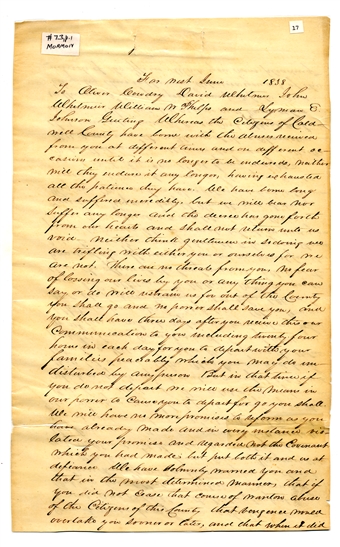 #73.8.1
MORMON
17
Far West June 1838
To Oliver Cowdry David Whitmer John
Whitmer William W Phelps and Lyman E
Johnson Greeting Whereas the Citizens of Cald-
well County have borne with the abuse received
from you at different times and on different oc
casions until it is no longer to be endured, neither
will they endure it any longer, having exhausted
all the patience they have. We have borne long
and suffered incredibly but we will bear nor
suffer any longer and the decree has gone forth
from our hearts and shall not return unto us
void. Neither think gentlemen in so doing we
are trifling with either you or ourselves for we
are not. There are no threats from you no fear
of loosing our lives by you or any thing you can
say or do will restrain us for out of the County
you shall go and no power shall save you, and
you shall have three days after you receive this our
Communication to you including twenty four
hours in each day for you to depart with your
families peacably which you may do un
disturbed by any person But in that time if
you do not depart we will use the means in
our power to Cause you to depart for go you shall
We will have no more promises to reform as you
have already made and in every instance vio
lated your promises and regarded not the Covenant
which you had made but put both it and us at
defiance We have solemnly warned you and
that in the most determined manner, that if
you did not cease that course of wanton abuse
of the Citizens of this County that vengence would
overtake you sooner or later, and that when it did